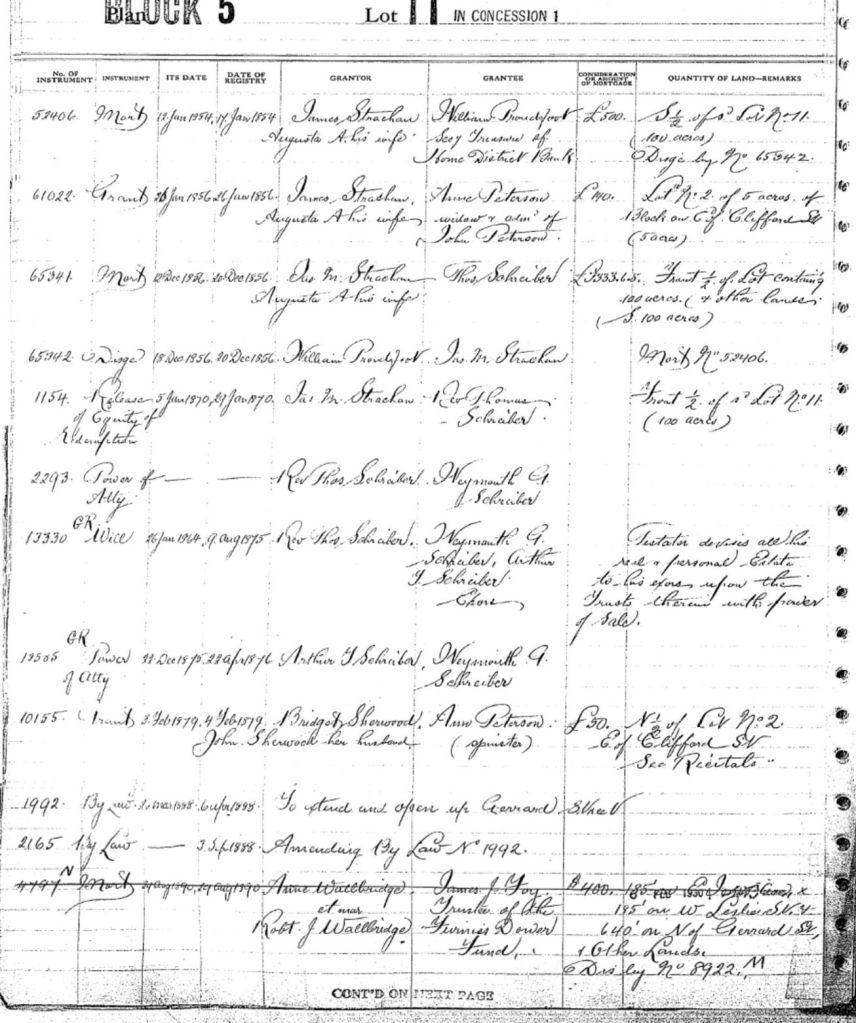 Plan BLOCK 5 Lot 11 IN CONCESSION 1
No. OF INSTRUMENT INSTRUMENT ITS DATE DATE OF REGISTRY GRANTOR GRANTEE CONSIDERATION OR AMOUNT OF MORTGAGE QUANTITY OF LAND—REMARKS
52406. Mort 12 Jan 1854. 17 Jan 1854 James Strachan William Proudfoot £500. S ½ of sd Lot No 11.
Augusta A. his wife Secy Treasure of (100 acres)
Home District Bank Disge by No 65342.
61022 Grant 26 Jan 1856 26 Jan 1856. James Strachan, Anne Peterson £140. Lot No 2 of 5 acres of
Augusta A his wife widow & admx of Block on E of Clifford St
John Peterson. (5 acres)
65341. Mort Dec 1856 20 Dec 1856. Jas M. Strachan Thos Schreiber £3333.6.8. Front ½ of Lot containg
Augusta A his wife 100 acres. (& other lands
(S. 100 acres)
65342 Disge 18 Dec 1856. 20 Dec 1856. William Proudfoot Jas. M. Strachan Mort No 52406.
1154. Release 5 Jan 1870, 29 Jan 1870. Jas M. Strachan Rev Thomas Front ½ of sd Lot No 11.
of Equity of Schreiber. (100 acres)
Redemption
2293. Power of — — Rev Thos Schreiber. Weymouth G.
Atty Schreiber
13330 GR Will 26 Jan 1864. 9 Aug 1875 Rev Thos Schreiber. Weymouth G. Testator devises all his
Schreiber, Arthur real & personal Estate
Schreiber to his exors upon the
Exors Trusts therein with power
of Sale.
GR
Power 22 Dec 1875 22 Apr 1876 Arthur Schreiber, Weymouth G.
of Atty Schreiber
10155. Grant 3 Feb 1879. 4 Feb 1879. Bridget Sherwood, Ann Peterson. £50. N ½ of Lot No. 2.
John Sherwood her husband (spinster) E of Clifford St
See Recitals
1992. By Law 26 Mar 1888 6 Apr 1888. To extend and open up Gerrard Street
2165 By Law — 3 Sep 1888 Amending By Law No 1992.
4797 N Mort Aug 1890 Aug 1890 Anne Wallbridge. James J. Foy. $400. 185' on E x
et mar Trustee of the 185' on W Leslie St. &
Robt. J Wallbridge Furniss Dower 640' on N of Gerrard St,
Fund, & Other Lands.
Dis by No 8922. M
CONT'D ON NEXT PAGE